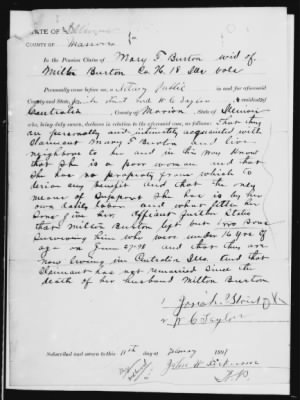 STATE OF Illinois
COUNTY OF Marion
In the Pension Claim of Mary F Burton wid of
Milton Burton Co H. 18 Ills vols
Personally came before me, a Notary Public in and for aforesaid
County and State, and W C Taylor residents of
Centralia, County of Marion, State of Illinois
who, being duly sworn, declares in relation to the aforesaid case, as follows: That they
are personally and intimately acquainted with
Claimant Mary F Burton and live
neighbors to her and in this way Know
that She is a poor woman and that
She has no property from which to
derive any benefit and that the only
means of Support She has is by her
own daily labor and what little her
Sons give her. Affiant further States
that Milton Burton left but two Sons
Surviving him who were under 16 yrs of
age on June 27-90 and that they are
now living in Centralia Ills. and that
Claimant has not remarried Since the
death of her husband Milton Burton
W C Taylor
Subscribed and sworn to this 11th day of 1891
John W
N.P.